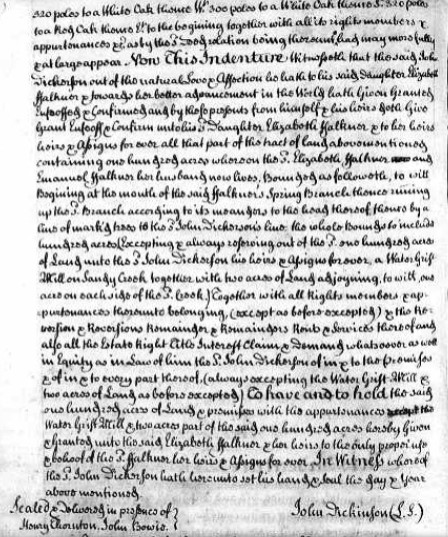 320 poles to a White Oak thence Wt. 300 poles to a White Oak thence S. 320 poles
to a Red Oak thence Et. to the begining together with all its rights members &
appurtenances &c. as by the sd. relation being thereunto had may more fully
& at large appear. Now This Indenture Witnesseth that the said John
Dickerson out of the natural Love & Affection he hath to his said Daughter Elizabeth
Falkner & towards her better advancement in the World hath Given Granted
Enfeoffed & Confirmed and by these presents from himself & his heirs doth Give
Grant Enfeoff & Confirm unto his sd. Daughter Elizabeth Falkner & to her heirs
heirs & Assigns for ever all that part of the tract of land abovementioned
containing one hundred acres whereon the sd. Elizabeth Falkner and
Emanuel Falkner her husband now lives, Bounded as followeth, to wit
Begining at the mouth of the said Falkner's Spring Branch thence runing
up the sd. Branch according to its meanders to the head thereof thence by a
line of mark'd trees to the sd. John Dickerson's line the whole Bounds to include
hundred acres (Excepting & always reserving out of the sd. one hundred acres
of Land unto the sd. John Dickerson his heirs & Assigns for ever, a Water Grist
Mill on Sandy Creek together with two acres of Land adjoyning, to wit, one
acre on each side of the sd. Creek) Together with all Rights members & ap-
purtenances thereunto belonging, (except as before excepted) & the Re-
version & Reversions Remainder & Remainders Rents & Services thereof and
also all the Estate Right Title Interest Claim & demand whatsoever as well
in Equity as in Law of him the sd. John Dickerson of in & to the Premises
& of in & to every part thereof, (always excepting the Water Grist Mill &
two acres of Land as before excepted) To have and to hold the said
one hundred acres of Land & premises with the appurtenances except the
Water Grist Mill & two acres part of the said one hundred acres hereby Given
& Granted unto the said Elizabeth Falkner & her heirs to the only proper use
& behoof of the sd. Falkner her heirs & Assigns for ever. In Witness whereof
the sd. John Dickerson hath hereunto set his hand & Seal the day & Year
above mentioned
Sealed & Delivered in presence of } John Dickinson (L.S.)
Henry Thornton, John Bowie. }